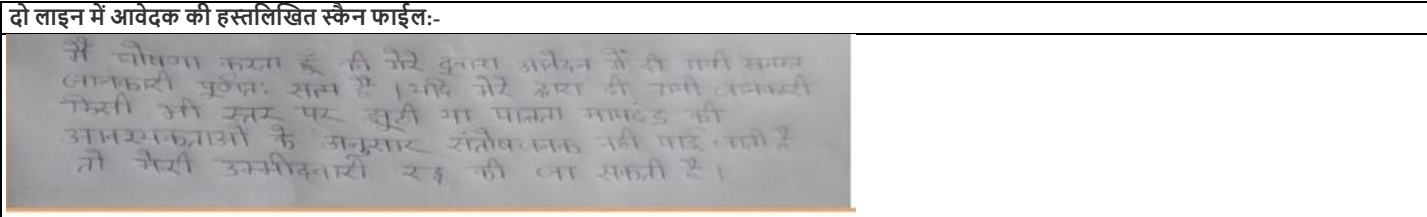 दो लाइन में आवेदक की हस्तलिखित स्कैन फाईल:-
मैं घोषणा करता हूँ की मेरे द्वारा आवेदन में दी गयी समस्त
जानकारी पूर्णतः सत्य है । यदि मेरे द्वारा दी गयी जानकारी
किसी भी स्तर पर झूठी या पात्रता मापदंड की
आवश्यकताओं के अनुसार संतोषजनक नही पाई जाती है
तो मेरी उम्मीदवारी रद्द की जा सकती है ।